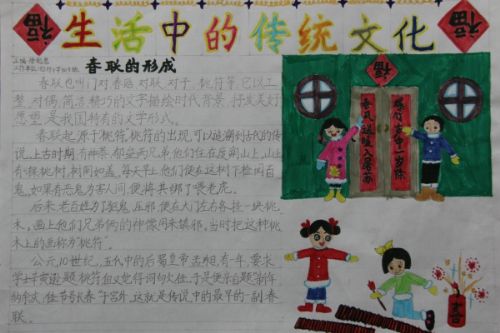 福
生活中的传统文化
福
春联的形成
春联也叫门对、春贴、对联、对子、桃符等,它以工
整、对偶、简洁、精巧的文字描绘时代背景,抒发美好
愿望,是我国特有的文字形式。
春联起原于桃符。桃符的出现可以追溯到古代的传
说。上古时期有神荼、郁垒两兄弟他们住在度朔山上,山上
有棵桃树,树荫如盖。每天早上,他们便在这树下检阅百
鬼。如果有恶鬼为害人间,便将其绑了喂老虎。
后来,老百姓为了驱鬼、压邪便在大门左右各挂一块桃
木,画上他们兄弟俩的神像用来镇邪,当时把这种桃
木上的画称为"桃符"。
公元10世纪,五代中的后蜀皇帝孟昶,有一年,要求
学士辛寅逊题桃符但又觉得词句欠佳,于是便亲自题"新年
纳余庆,佳节号长春"于宫外,这就是传说中的最早的一副春
联。
福
春风送暖入屠苏
爆竹声中一岁除
喜